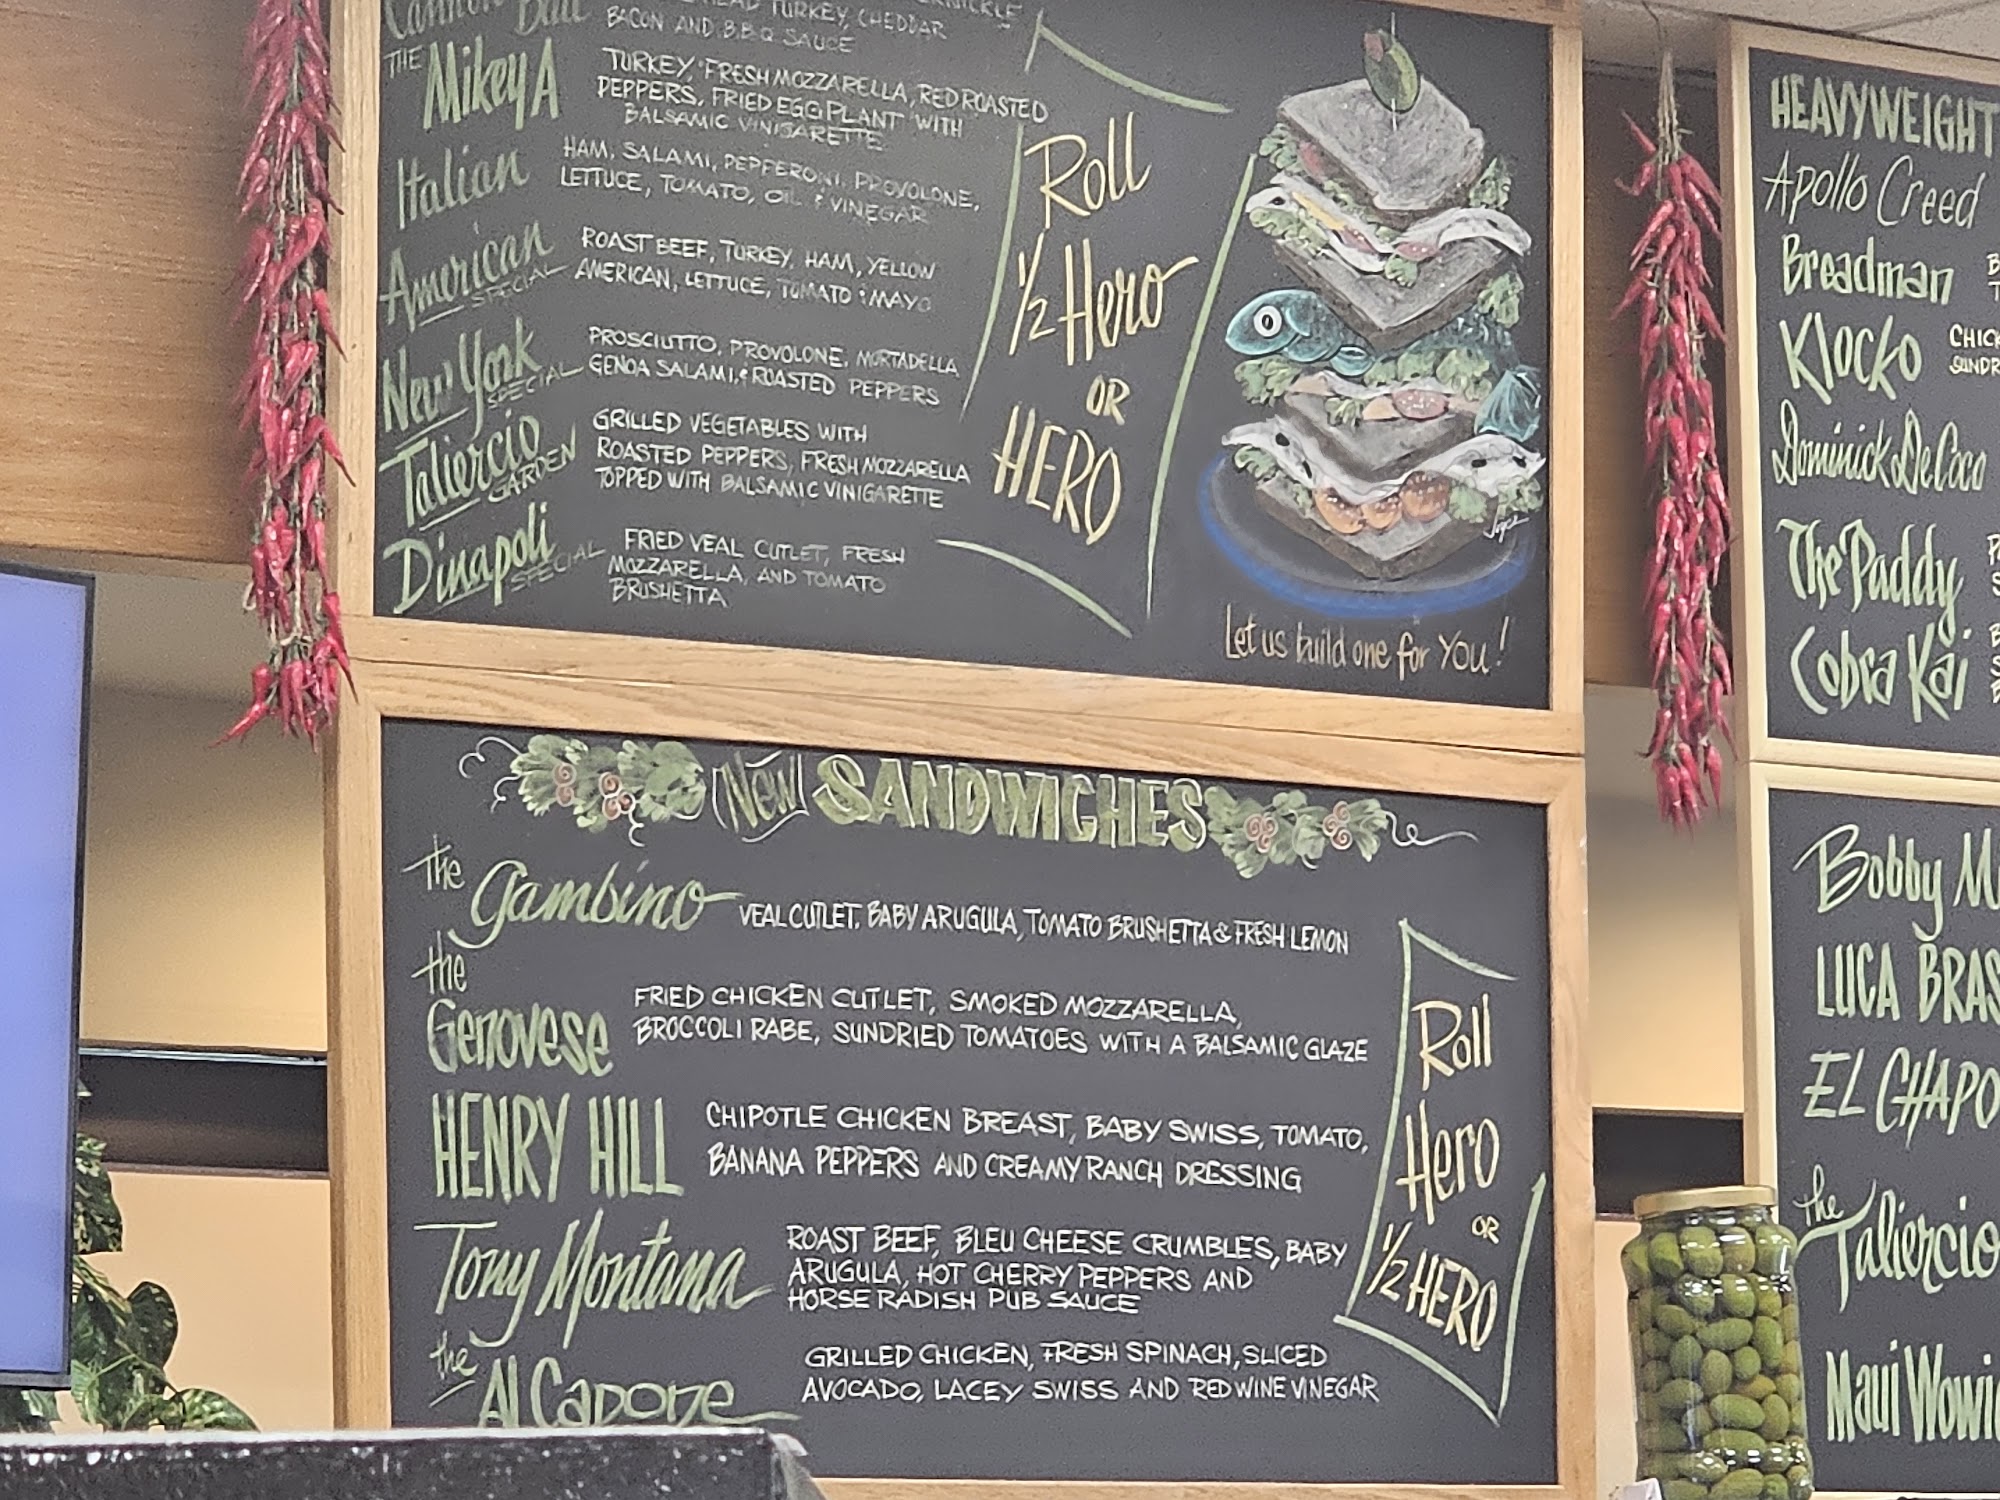 Cannon Ball
TURKEY, CHEDDAR
BACON AND B.B.Q. SAUCE
THE Mikey A
TURKEY, FRESH MOZZARELLA, RED ROASTED
PEPPERS, FRIED EGGPLANT WITH
BALSAMIC VINIGARETTE
Italian
HAM, SALAMI, PEPPERONI, PROVOLONE,
LETTUCE, TOMATO, OIL & VINEGAR
American
SPECIAL
ROAST BEEF, TURKEY, HAM, YELLOW
AMERICAN, LETTUCE, TOMATO & MAYO
New York
SPECIAL
PROSCIUTTO, PROVOLONE, MORTADELLA
GENOA SALAMI, & ROASTED PEPPERS
Taliercio
GARDEN
GRILLED VEGETABLES WITH
ROASTED PEPPERS, FRESH MOZZARELLA
TOPPED WITH BALSAMIC VINIGARETTE
Dinapoli
SPECIAL
FRIED VEAL CUTLET, FRESH
MOZZARELLA, AND TOMATO
BRUSHETTA
Roll
1/2 Hero
OR
HERO
Let us build one for YOU!
New SANDWICHES
The Gambino
VEAL CUTLET, BABY ARUGULA, TOMATO BRUSHETTA & FRESH LEMON
the
Genovese
FRIED CHICKEN CUTLET, SMOKED MOZZARELLA,
BROCCOLI RABE, SUNDRIED TOMATOES WITH A BALSAMIC GLAZE
HENRY HILL
CHIPOTLE CHICKEN BREAST, BABY SWISS, TOMATO,
BANANA PEPPERS AND CREAMY RANCH DRESSING
Tony Montana
ROAST BEEF, BLEU CHEESE CRUMBLES, BABY
ARUGULA, HOT CHERRY PEPPERS AND
HORSE RADISH PUB SAUCE
the Al Capone
GRILLED CHICKEN, FRESH SPINACH, SLICED
AVOCADO, LACEY SWISS AND RED WINE VINEGAR
Roll
Hero
OR
1/2 HERO
HEAVYWEIGHT
Apollo Creed
Breadman
Klocko
CHICK
SUNDR
Dominick DeCoco
The Paddy
Cobra Kai
Bobby M
LUCA BRAS
EL CHAPO
the
Taliercio
Maui Wowi